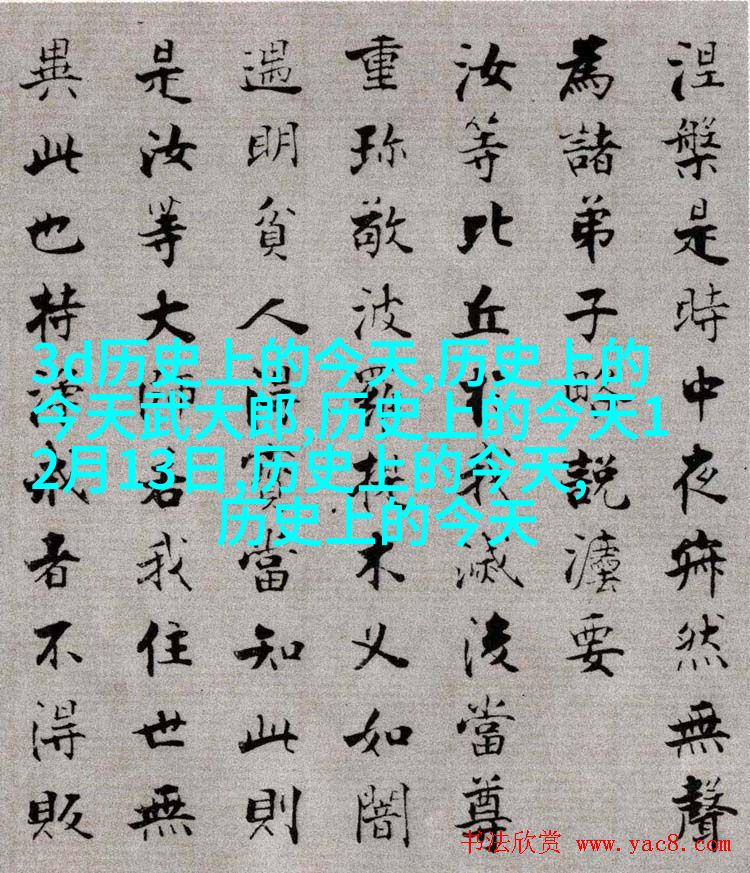 涅槃是時中夜寂然無聲
為諸弟子略說灋要
汝等比丘於我滅後當尊
重珎敬波羅提木叉如闇
遇明貧人得寶當知此則
是汝等大師若我住世無
異此也持淨戒者不得販
3d历史上的今天,历史上的
今天武大郎,历史上的今天1
2月13日,历史上的今天,
历史上的今天
书法欣赏 www.yac8.com